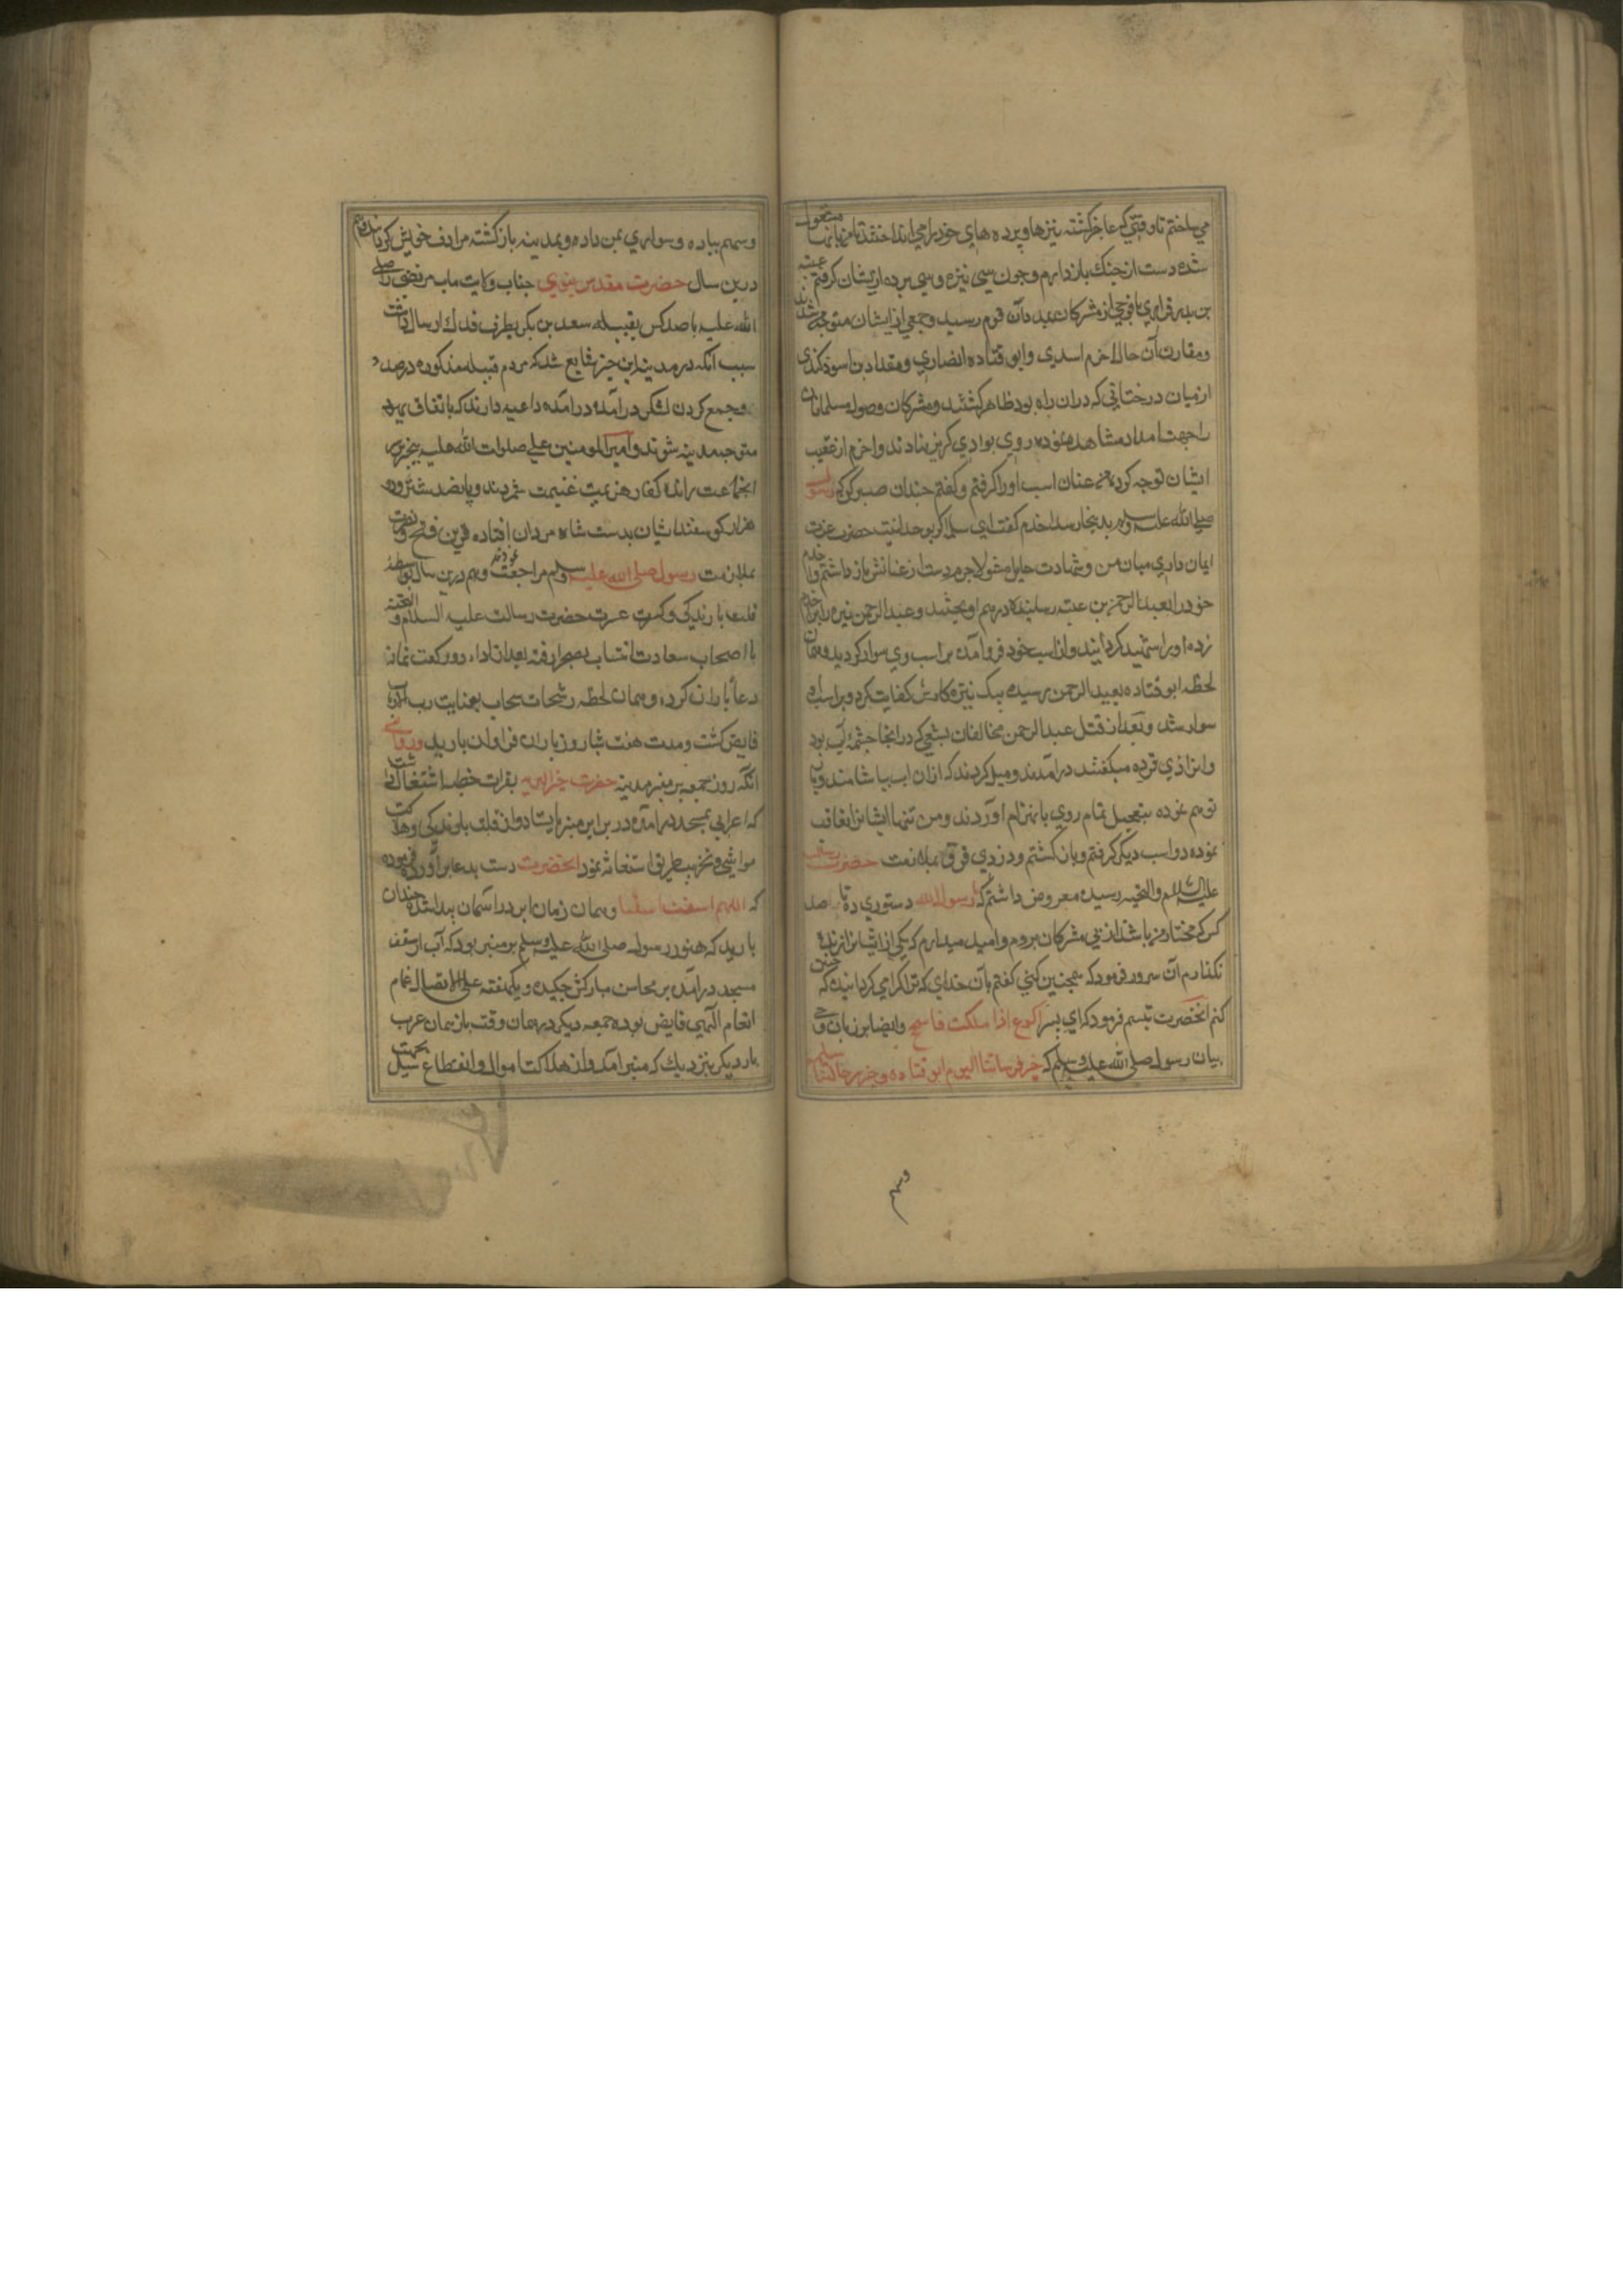 می ساختم تا وقتی که عاجز گشته نیزها و برده های خود را می انداختند تا من بآنها مشغول
شده دست از جنک باز دارم و چون سی نیزه و سی برده از یشان کرفتم عیینه
بن بدر فزاری با فوجی از مشرکان بمدد آن قوم رسید و جمعی از ایشان متوجه من شدند
و مقارن آن حال اخرم اسدی و ابو قتاده انصاری و مقداد بن اسود کندی
از میان درختانی که دران راه بود ظاهر کشتند و مشرکان وصول مسلمانان
را جهت امداد مشاهده نموده روی بوادی کریز نهادند و اخرم از عقیب
ایشان توجه کرده من عنان اسب او را کرفتم و کفتم چندان صبر کن که رسول
صلی الله علیه وسلم بدینجا رسد اخرم کفت ای سلمه اکر بوحدانیت حضرت عزت
ایمان داری میان من و شهادت حایل مشو لاجرم دست از عنانش باز داشتم و اخرم
خود را بعبد الرحمن بن عیینه رسانیده در هم آویختند و عبد الرحمن نیزه بر اخرم
زده او را شهید کردانید و از اسب خود فرو آمده بر اسب وی سوار کردید و همان
لحظه ابو قتاده بعبد الرحمن رسیده بیک نیزه کارش کفایت کرد و بر اسب او
سوار شد و بعد از قتل عبد الرحمن مخالفان بشعبی که در انجا چشمه آب بود
و انرا ذی قرده میکفتند درآمدند و میل کردند که ازان اب بیاشامند و باز
توهم نموده بتعجیل تمام روی بانهزام آوردند و من تنها ایشانرا تعاقب
نموده دو اسب دیکر کرفتم و باز کشتم و در ذی قرد بملازمت حضرت رسالت
علیه السلام والتحیه رسیده معروض داشتم که یا رسول الله دستوری ده تا صد
کس که مختار من باشد از پی مشرکان بروم و امید میدارم که یکی از ایشانرا زنده
نکذارم آن سرور فرمود که همچنین کنی کفتم بآن خدای که ترا کرامی کردانیده که چنین
کنم آنحضرت تبسم فرمود که ای پسر اکوع اذا ملکت فاسجح و ایضا بر زبان وحی
بیان رسول صلی الله علیه وسلم که خیر فرساننا الیوم ابو قتاده و خیر رجالتنا سلمه
وسهم
وسهم پیاده و سواری بمن داده و بمدینه باز کشته مرا ردیف خویش کردانید
درین سال حضرت مقدس نبوی جناب ولایت مآب مرتضی را صلی
الله علیه با صد کس بقبیله سعد بن بکر بطرف فدک ارسال داشت
سبب آنکه در مدینه این خبر شایع شد که مردم قبیله مذکوره در صدد
جمع کردن لشکر درآمده داعیه دارند که باتفاق یهود
متوجه مدینه شوند و امیر المومنین علی صلوات الله علیه بیخبر بر سر
انجماعت رانده کفار هزیمت غنیمت شمردند و پانصد شتر و دو
هزار کوسفند ایشان بدست شاه مردان افتاده قرین فتح و نصرت
بملازمت رسول صلی الله علیه وسلم مراجعت نمودند و هم درین سال بواسطه
قلت بارندکی و کسرت عسرت حضرت رسالت علیه السلام والتحیة
با اصحاب سعادت انتساب بصحرا رفته بعد از اداء دو رکعت نماز
دعا باران کرد و همان لحظه رشحات سحاب بعنایت رب الارباب
فایض کشت و مدت هفت شبانروز باران فراوان بارید و روایتی
آنکه روز جمعه بر منبر مدینه حضرت خیر البریه بقرات خطبه اشتغال داشت
که اعرابی بمسجد درآمده در برابر منبر بایستاد و از قلت بارندکی و هلاکت
مواشی و تخریب طریق استغاثه نمود آنحضرت دست بدعا برآورده فرموده
که اللهم اسقنا اسقنا و همان زمان ابر در آسمان پیدا شده چندان
بارید که هنوز رسول صلی الله علیه وسلم بر منبر بود که آب از سقف
مسجد درآمده بر محاسن مبارکش چکید و یکهفته علی الاتصال غمام
انعام الهی فایض بود جمعه دیکر در همان وقت باز همان عرب
بار دیکر بنزدیک که منبر آمد و از هلاکت اموال و انقطاع سبیل بجهت